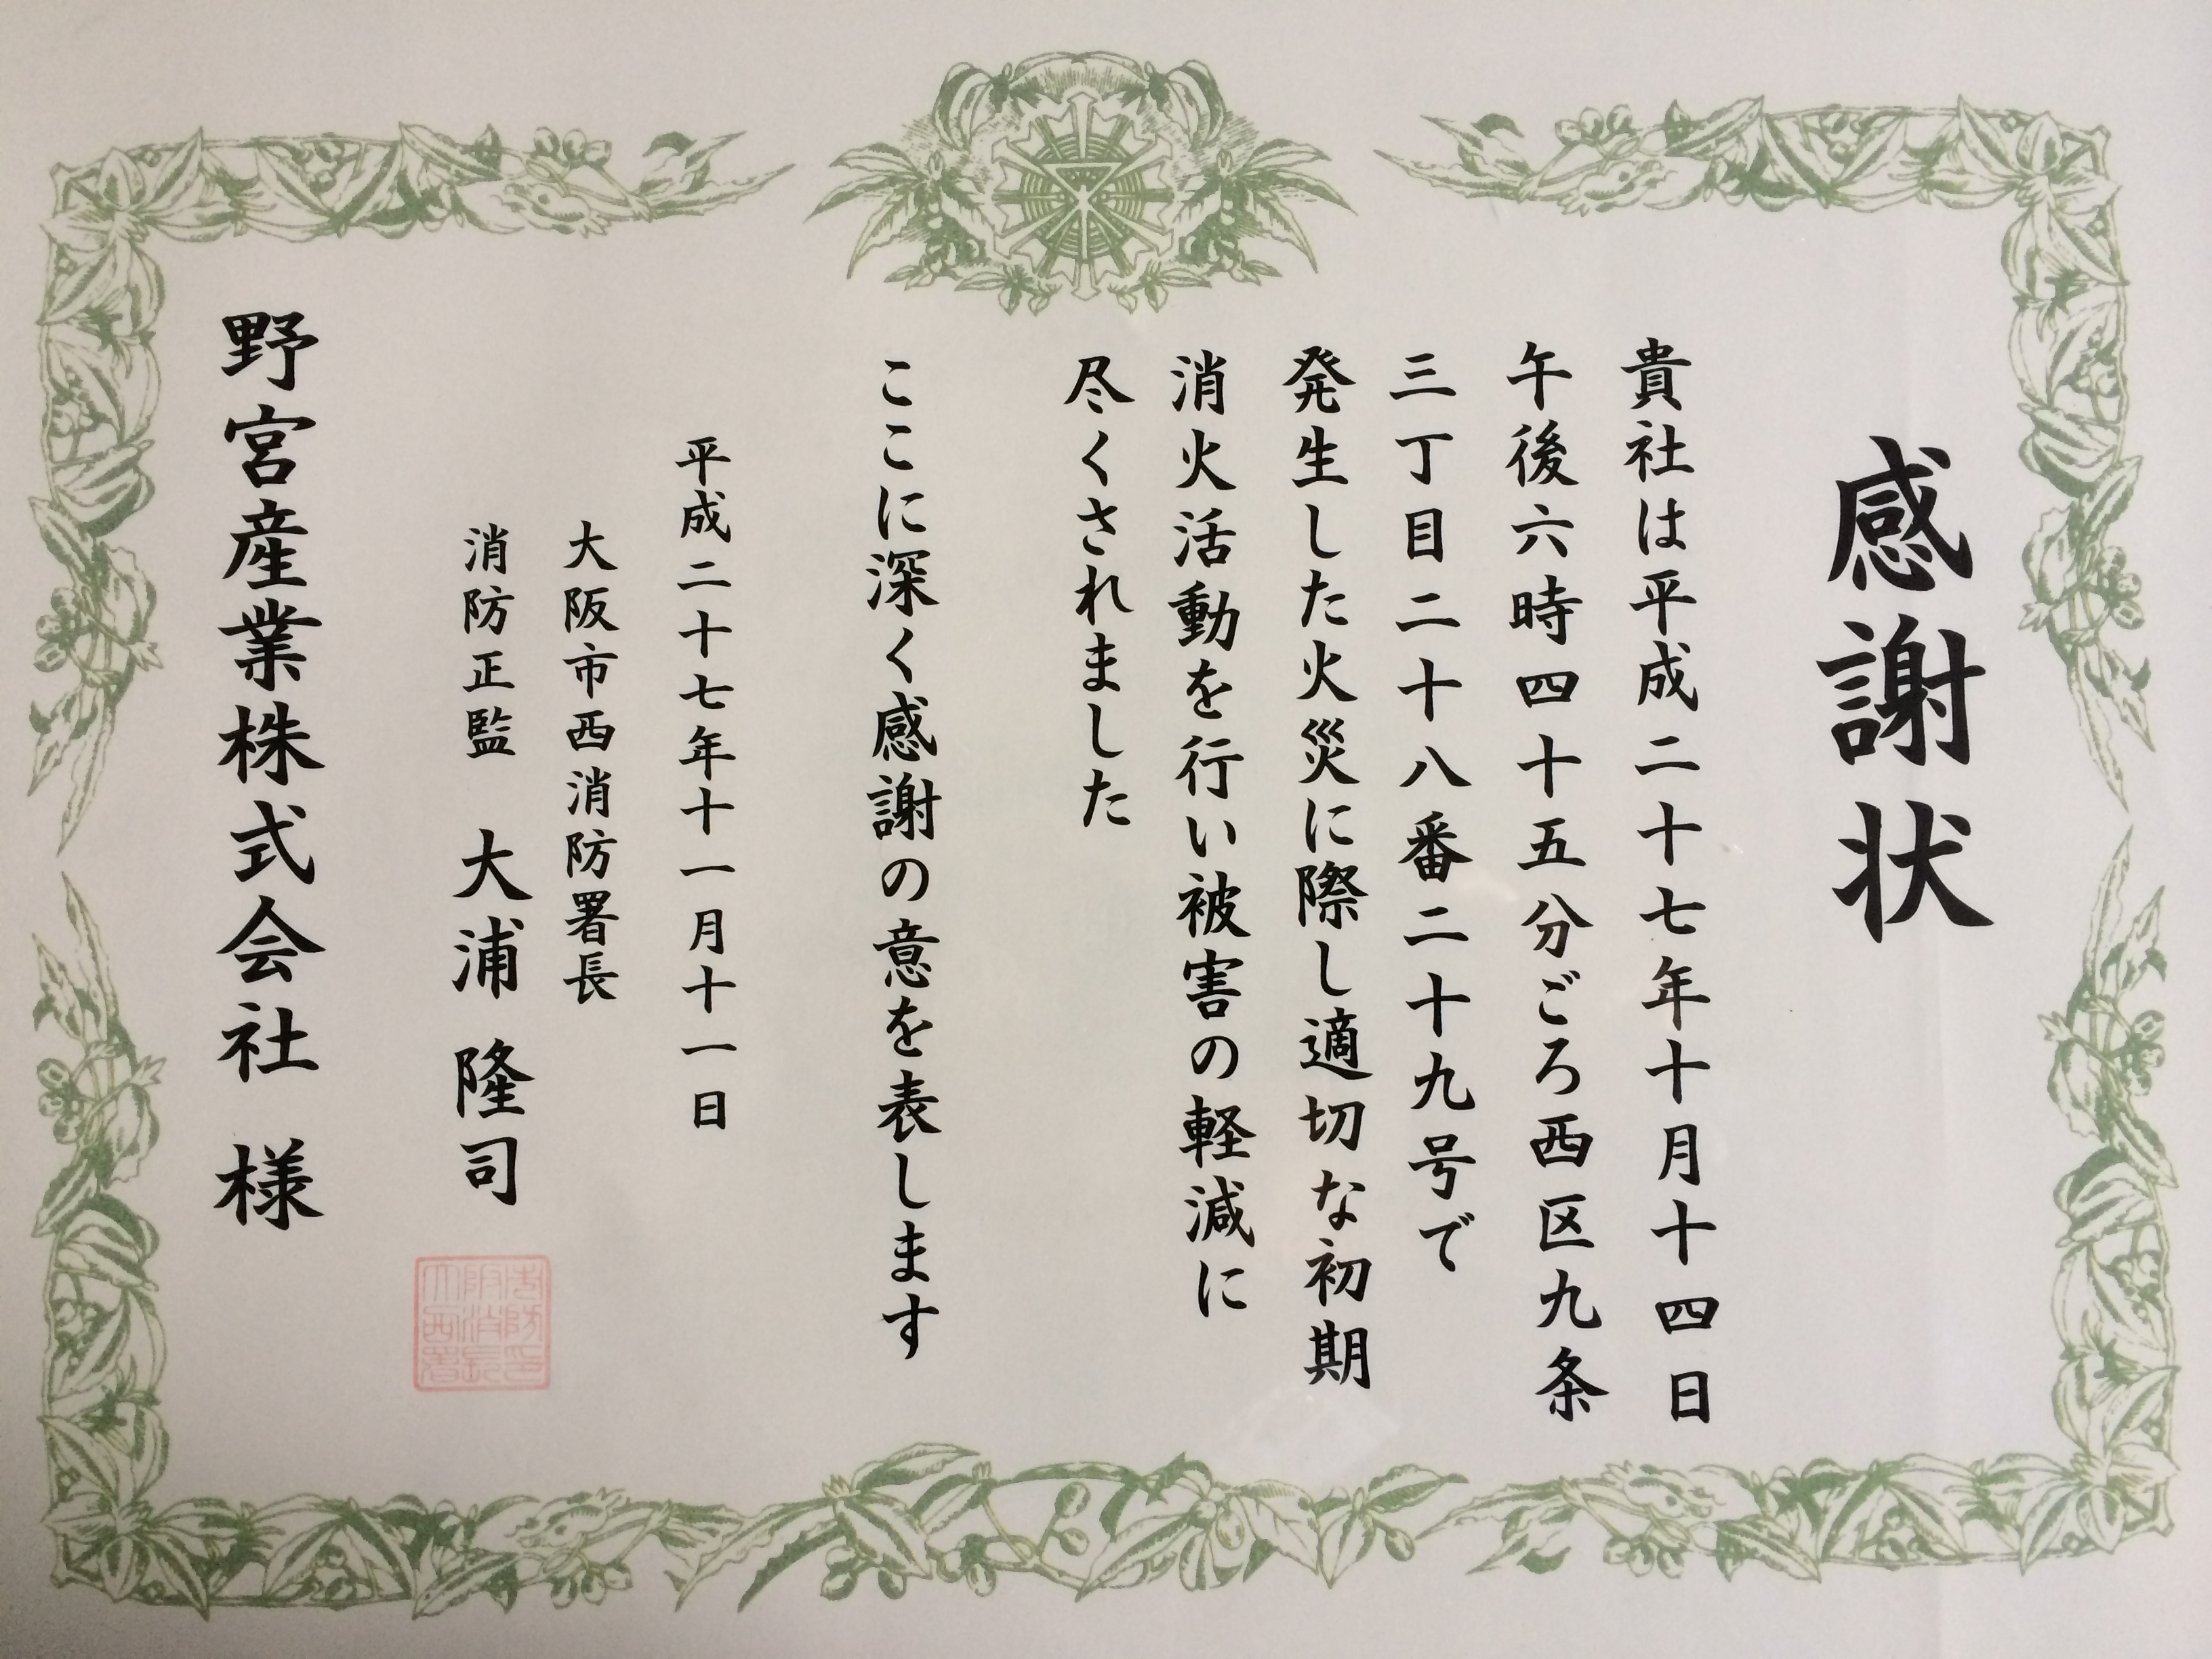 感謝状
貴社は平成二十七年十月十四日
午後六時四十五分ごろ西区九条
三丁目二十八番二十九号で
発生した火災に際し適切な初期
消火活動を行い被害の軽減に
尽くされました
ここに深く感謝の意を表します
平成二十七年十一月十一日
大阪市西消防署長
消防正監 大浦 隆司
野宮産業株式会社 様